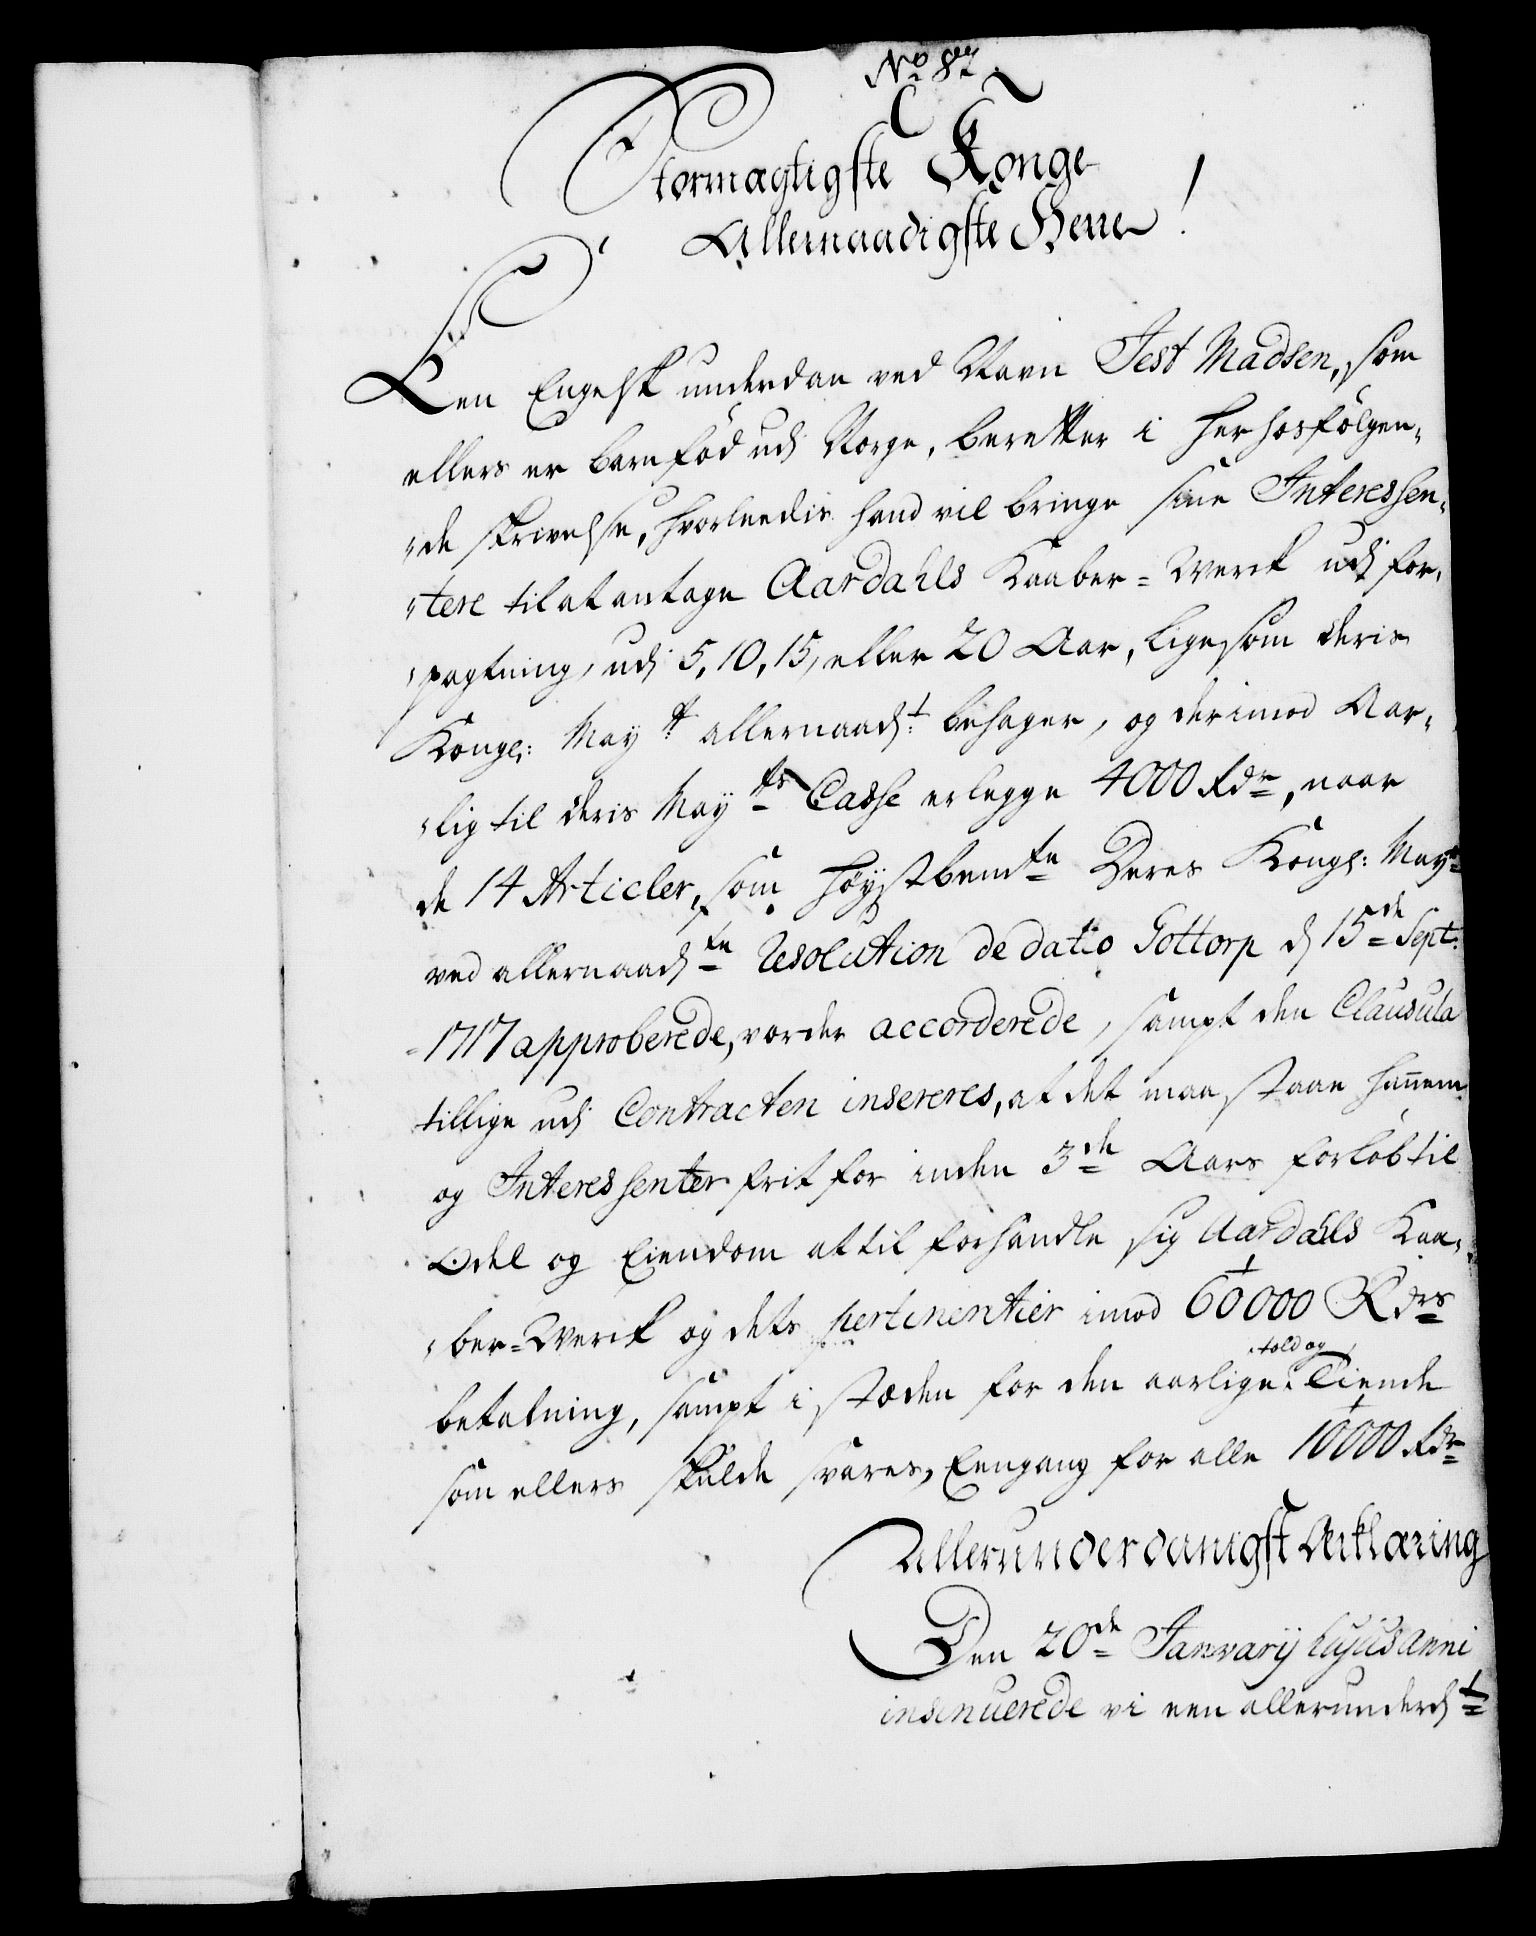 No 87
Stormagtigste Konge
Allernaadigste Herre!
Een Engelsk underdan ved Navn Jest Madsen, som
ellers er barnfød udj Norge, beretter i herhosfølgen„
„de skrivelse, hvorleedis hand vil bringe sine Interessen„
„tere til at antage Aardahls Kaaber=Werck udj for„
„pagtning, udj 5, 10, 15, eller 20 Aar, ligesom deris
Kongl: Maytt allernaadt behager, og derimod Aar„
„lig til deris Maytts Casse erlegge 4000 Rdr, naar
de 14 Articler, som høystbemte Deres Kongl: Maytt
ved allernaadste Resolution de dato Gottorp d 15de Sept:
1717 approberede, vorder accorderede, sampt den Clausula
tillige udj Contracten insereres, at det maa staae hannem
og Interessenter frit for inden 3de Aars forløb til
Odel og Eiendom at til forhandle sig Aardahls Kaa„
„ber=Werck og dets pertinentier imod 60000 Rdrs
betalning, sampt i stæden for den aarlige told og Tiende
som ellers skulde svares, Eengang for alle 10000 Rdr
Allerunderdanigst Erklæring
Den 20de Janvarij hujus anni
insinuerede vi een allerunderdt